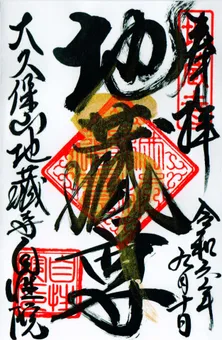 奉拝
令和六年
九月十日
地蔵尊
大久保山地蔵寺自性院